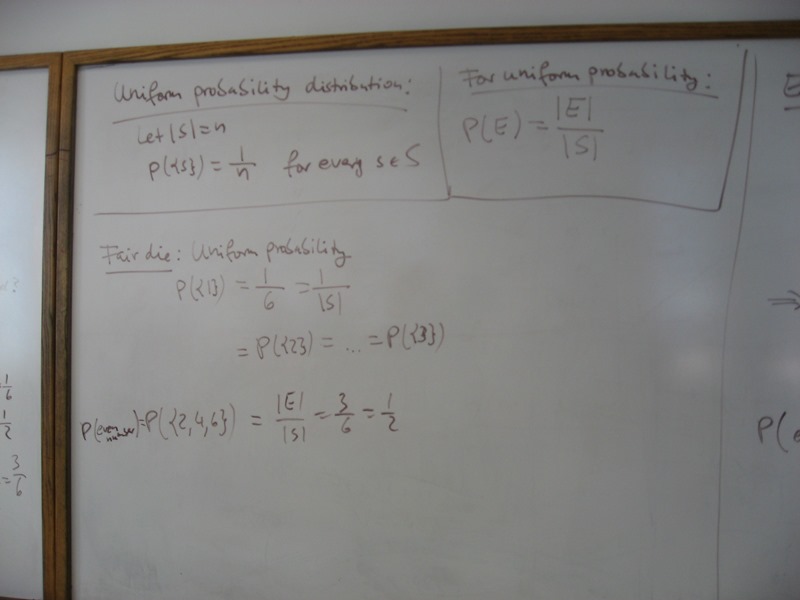 Uniform probability distribution:
Let |S| = n
P({s}) = 1/n for every s ∈ S
For uniform probability:
P(E) = |E|/|S|
Fair die: Uniform probability
P({1}) = 1/6 = 1/|S|
= P({2}) = ... = P({3})
P(even number) = P({2,4,6}) = |E|/|S| = 3/6 = 1/2
1/6
1/2
= 3/6
E
⇒
P(e